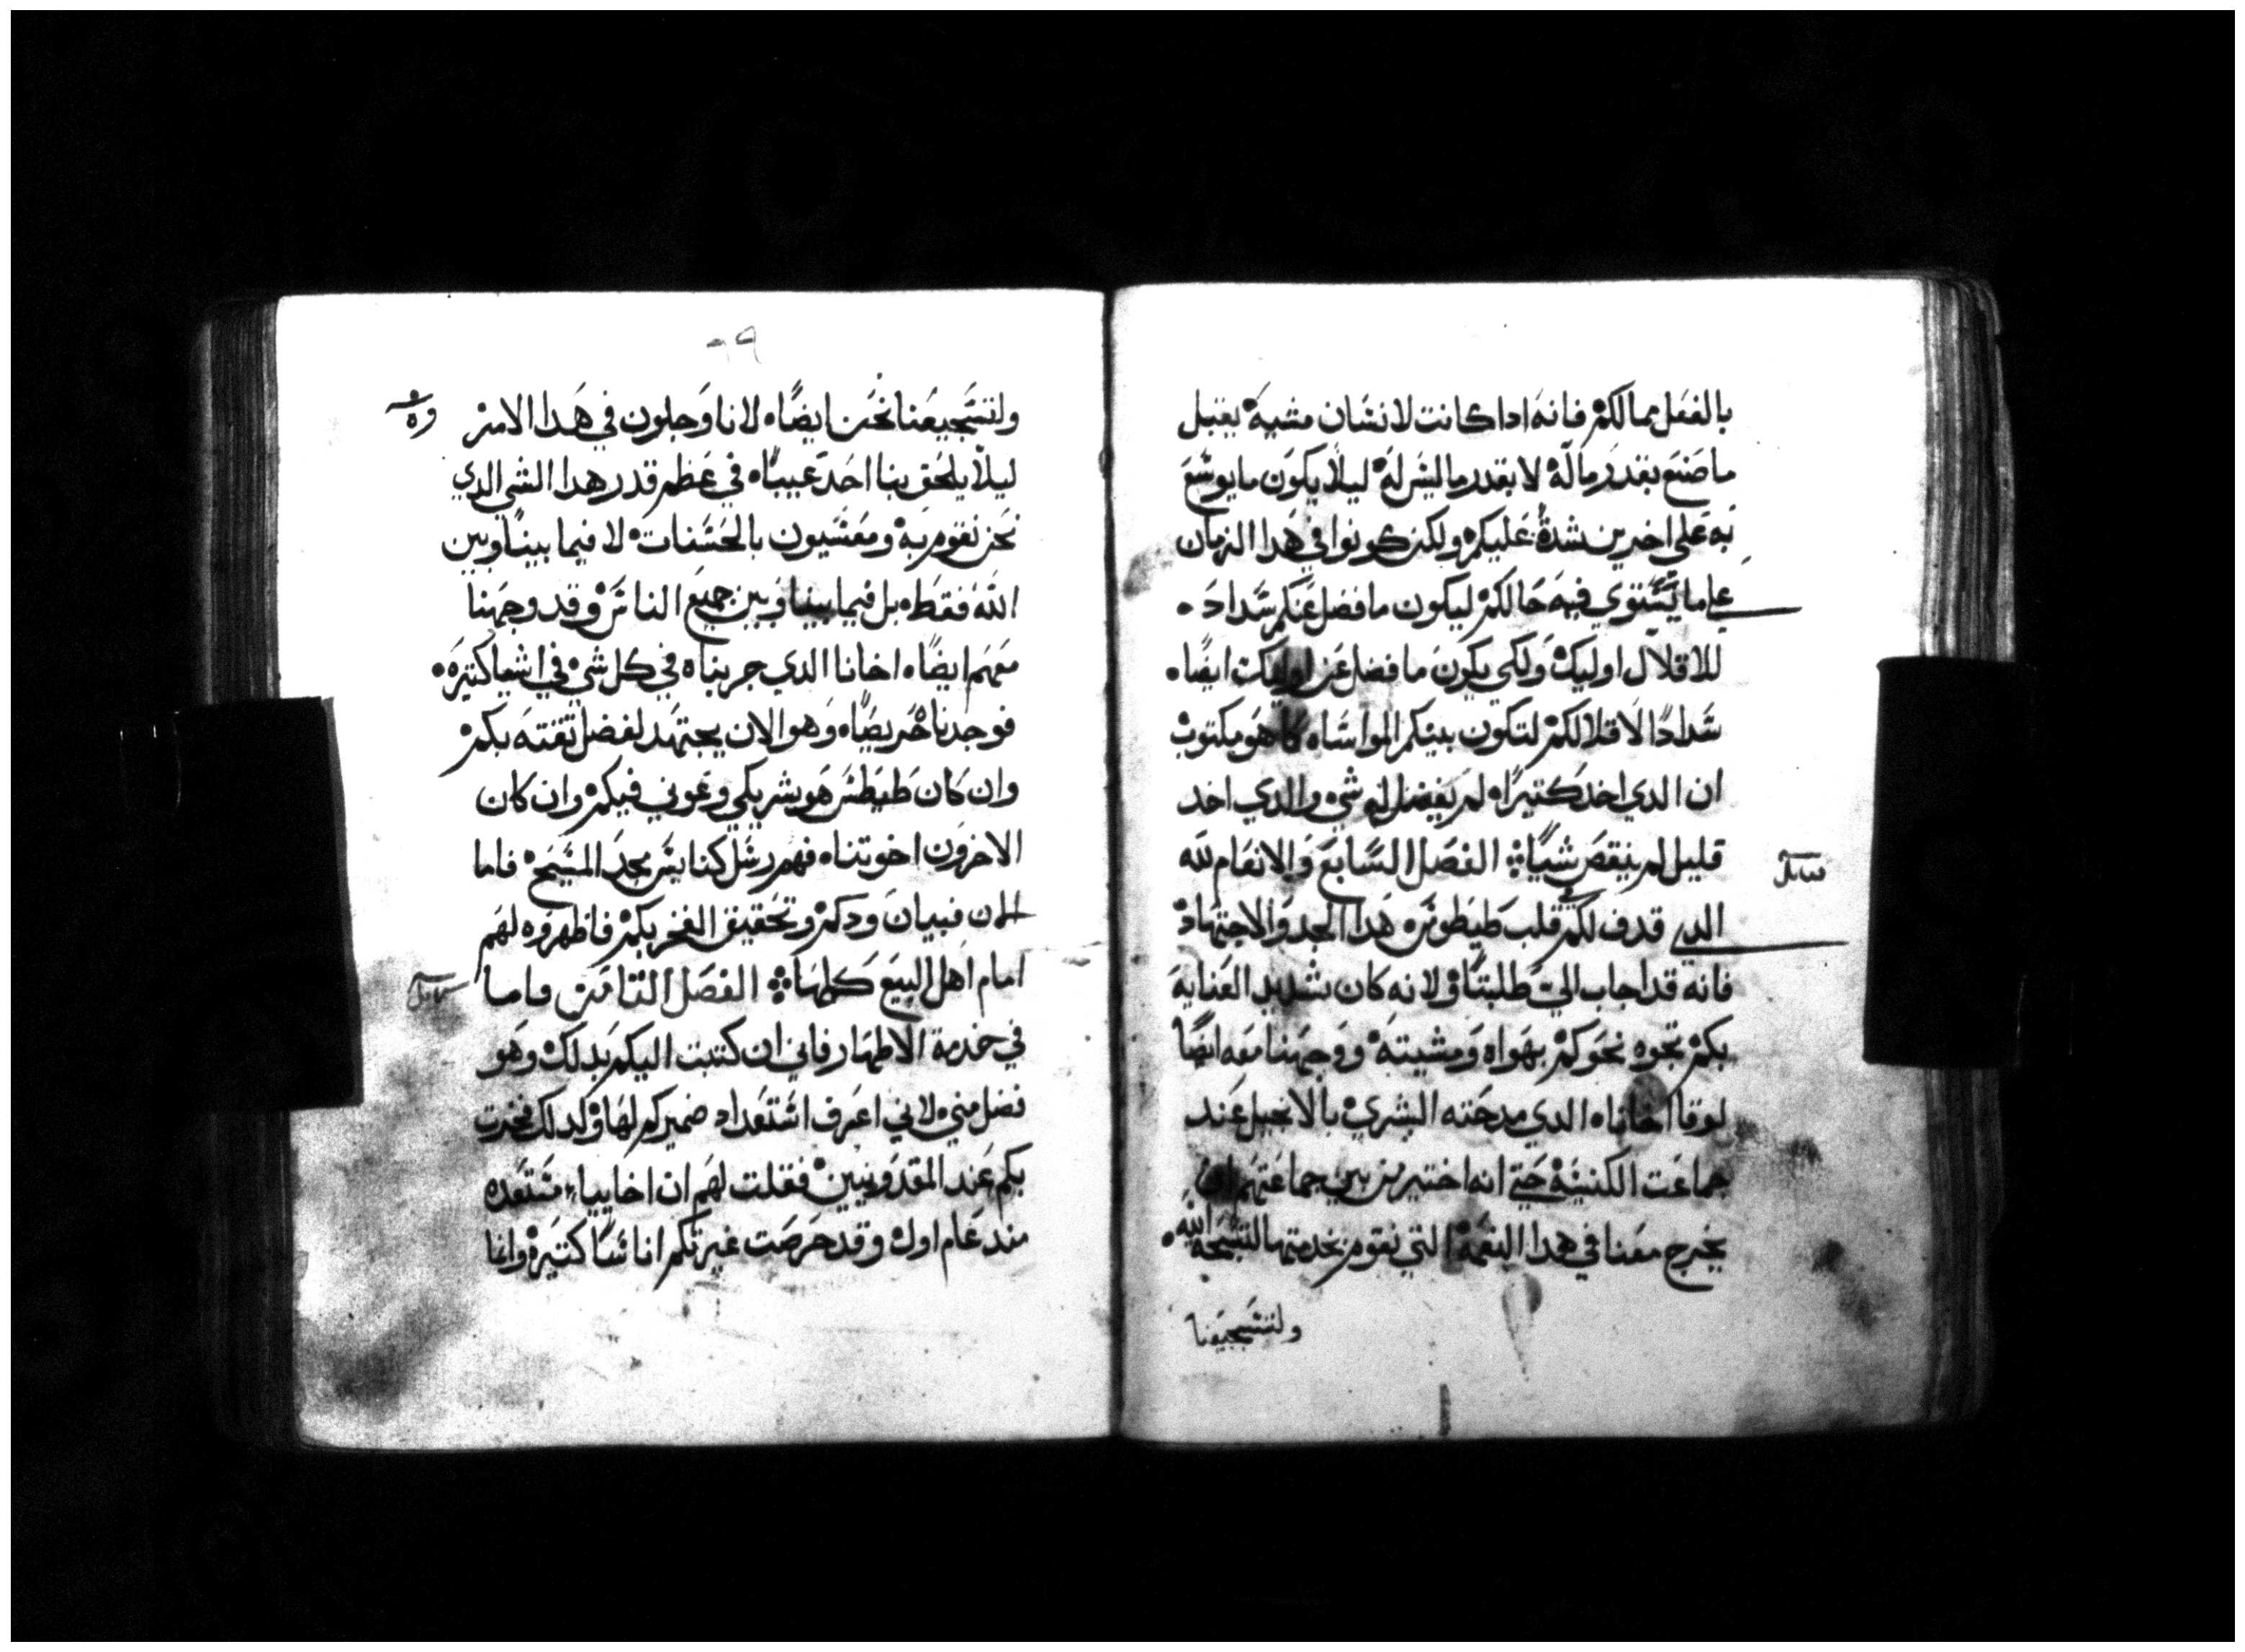 بالفعل بمالكم فانه ادا كانت لانسان مشية يقبل
ما صنع بقدر ماله لا بقدر ما ليس له ليلا يكون ما يوسع
به علي اخرين شدة عليكم ولكن كونوا في هدا الزمان
علي ما يستوي فيه حالكم ليكون ما فضل عنكم سداد
للاقلال اوليك ولكي يكون ما فضل عن اوليك ايضا
سدادا لاقلالكم لتكون بينكم المواساه كما هو مكتوب
ان الدي اخد كتيرا لم يفضل له شي والدي اخد
قليل لم ينقص شيا الفصل السابع والانعام لله
الدي قدف لكم في قلب طيطوس هدا الجد والاجتهاد
فانه قد اجاب الي طلبتنا ولانه كان شديد العنايه
بكم توجه نحوكم بهواه ومشيته ووجهنا معه ايضا
لوقا اخانا الدي مدحته البشري بالانجيل عند
جماعت الكنيسة حتي انه اختير من بين جماعتهم ان
يخرج معنا في هدا النعمة التي نقوم بخدمتها لتسبحة الله
ولتشجيعنا
٦٩
ولتشجيعنا نحن ايضا لانا وجلون في هدا الامر
ليلا يلحق بنا احد عيبا في عظم قدر هدا الشي الدي
نحن نقوم به ومعنيون بالحسنات لا فيما بيننا وبين
الله فقط بل فيما بيننا وبين جميع الناس وقد وجهنا
معهم ايضا اخانا الدي جربناه في كل شي في اشيا كتيرة
فوجدناه حريصا وهو الان يجتهد لفضل تقته بكم
وان كان طيطس هو شريكي وعوني فيكم وان كان
الاخرون اخوتنا فهم رسل كنايس مجد المسيح فاما
الان فبيان ودكم وتحقيق الفخر بكم فاظهروه لهم
امام اهل البيع كلها الفصل التامن فاما
في خدمة الاطهار فاني ان كتبت اليكم بدلك وهو
فضل مني لاني اعرف استعداد ضميركم لها وكدلك فخرت
بكم عند المقدونيين فقلت لهم ان اخاييا مستعده
مند عام اول وقد حرصت غيرتكم اناسا كتيرة وانما